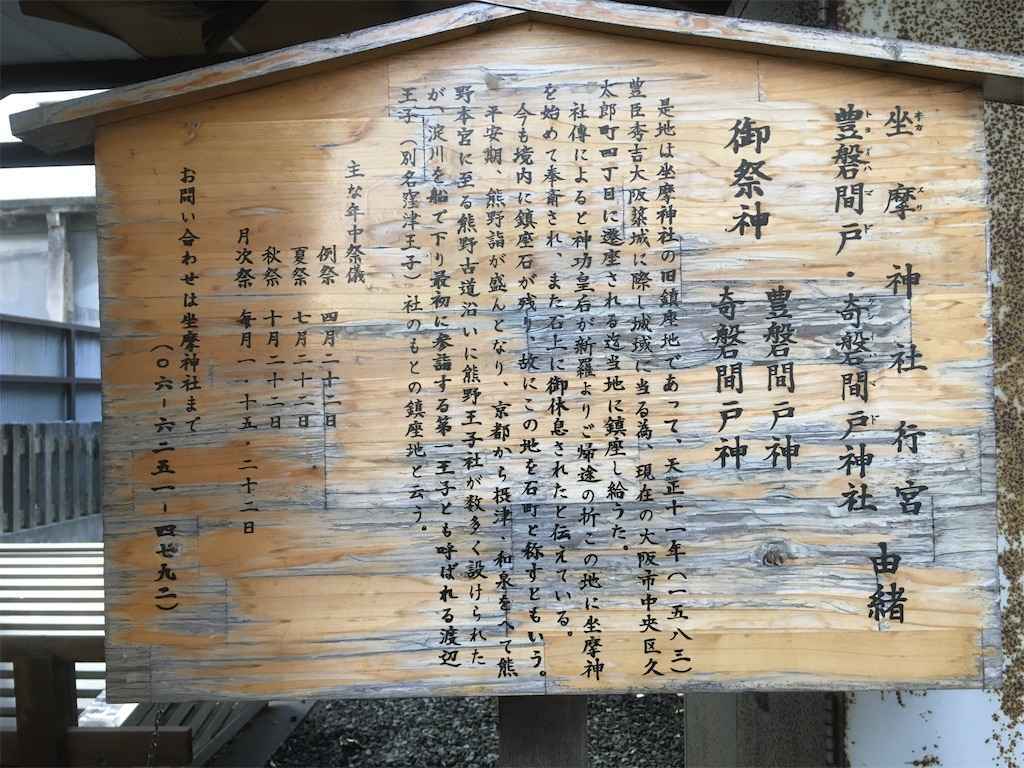 坐摩神社行宮
豊磐間戸・奇磐間戸神社
由緒
御祭神
豊磐間戸神
奇磐間戸神
是地は坐摩神社の旧鎮座地であって、天正十一年（一五八三）
豊臣秀吉大阪築城に際し城域に当る為、現在の大阪市中央区久
太郎町四丁目に遷座される迄当地に鎮座し給うた。
社傳によると神功皇后が新羅よりご帰途の折この地に坐摩神
を始めて奉斎され、また石上に御休息されたと伝えている。
今も境内に鎮座石が残り、故にこの地を石町と称すともいう。
平安期、熊野詣が盛んとなり、京都から摂津、和泉をへて熊
野本宮に至る熊野古道沿いに熊野王子社が数多く設けられた
が、淀川を船で下り最初に参詣する第一王子とも呼ばれる渡辺
王子（別名窪津王子）社のもとの鎮座地と云う。
主な年中祭儀
例祭 四月二十二日
夏祭 七月二十二日
秋祭 十月二十二日
月次祭 毎月一・十五・二十二日
お問い合わせは坐摩神社まで
（〇六－六二五一－四七九二）